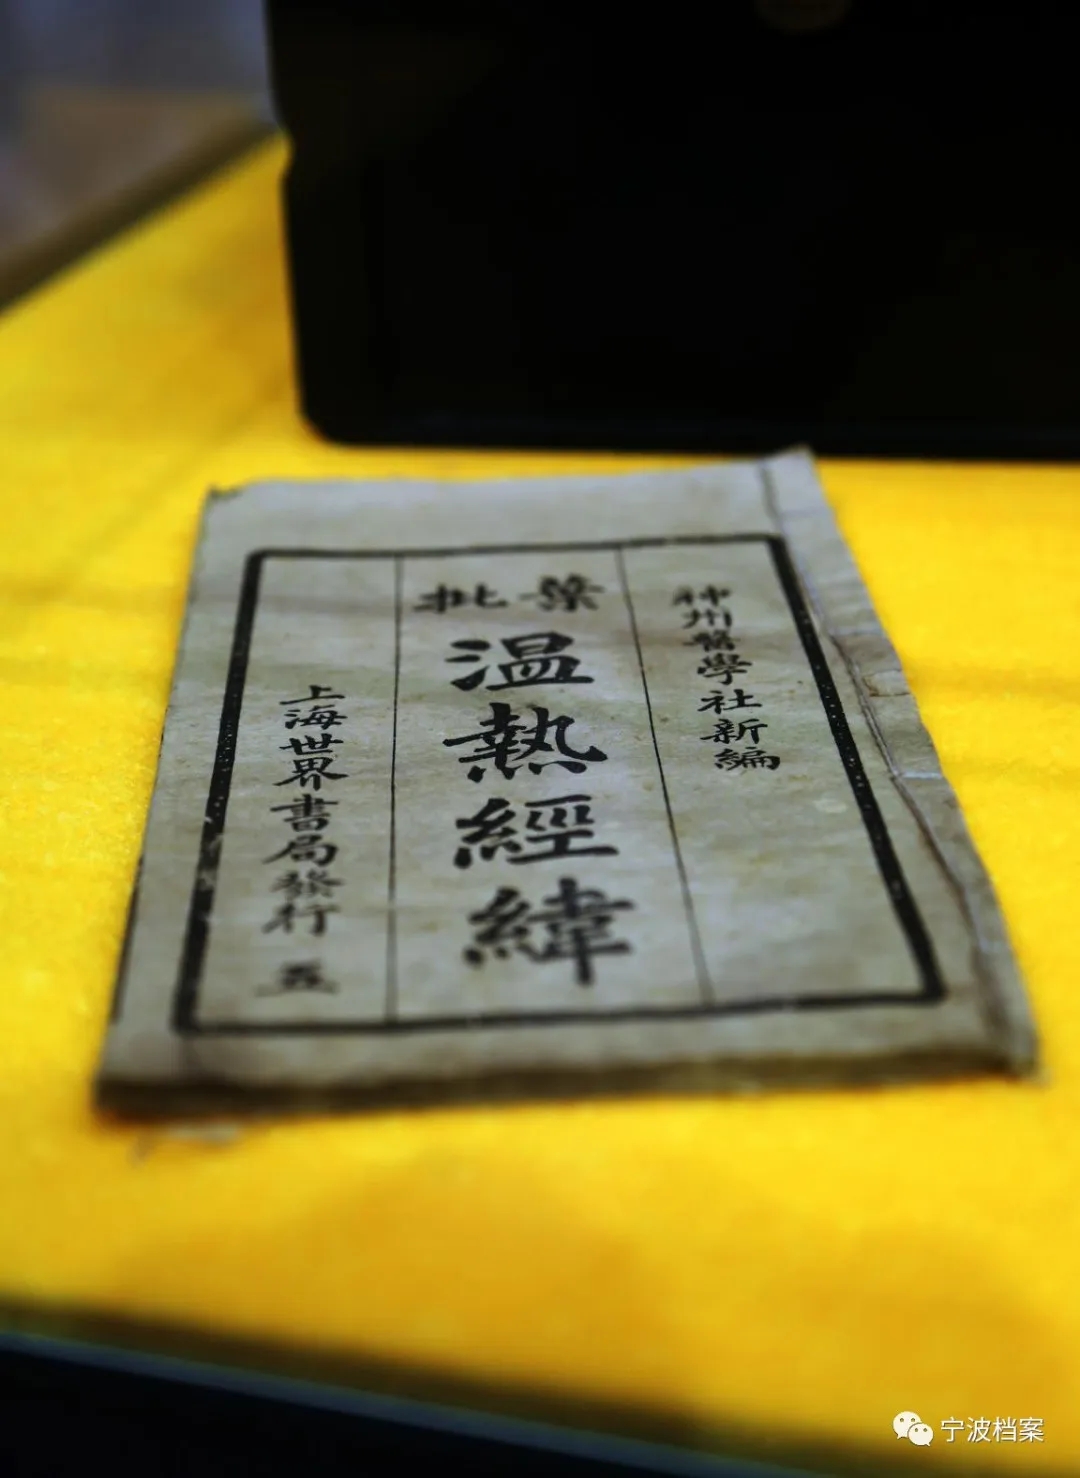 神州醫學社新編
葉批
温熱經緯
上海世界書局發行 五
宁波档案